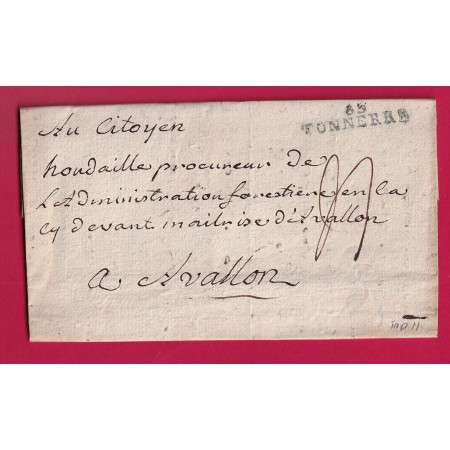 83
TONNERRE
Au Citoyen
houdaille procureur de
L'Administration forestiere en la
cy devant maitrise d'Avallon
a Avallon